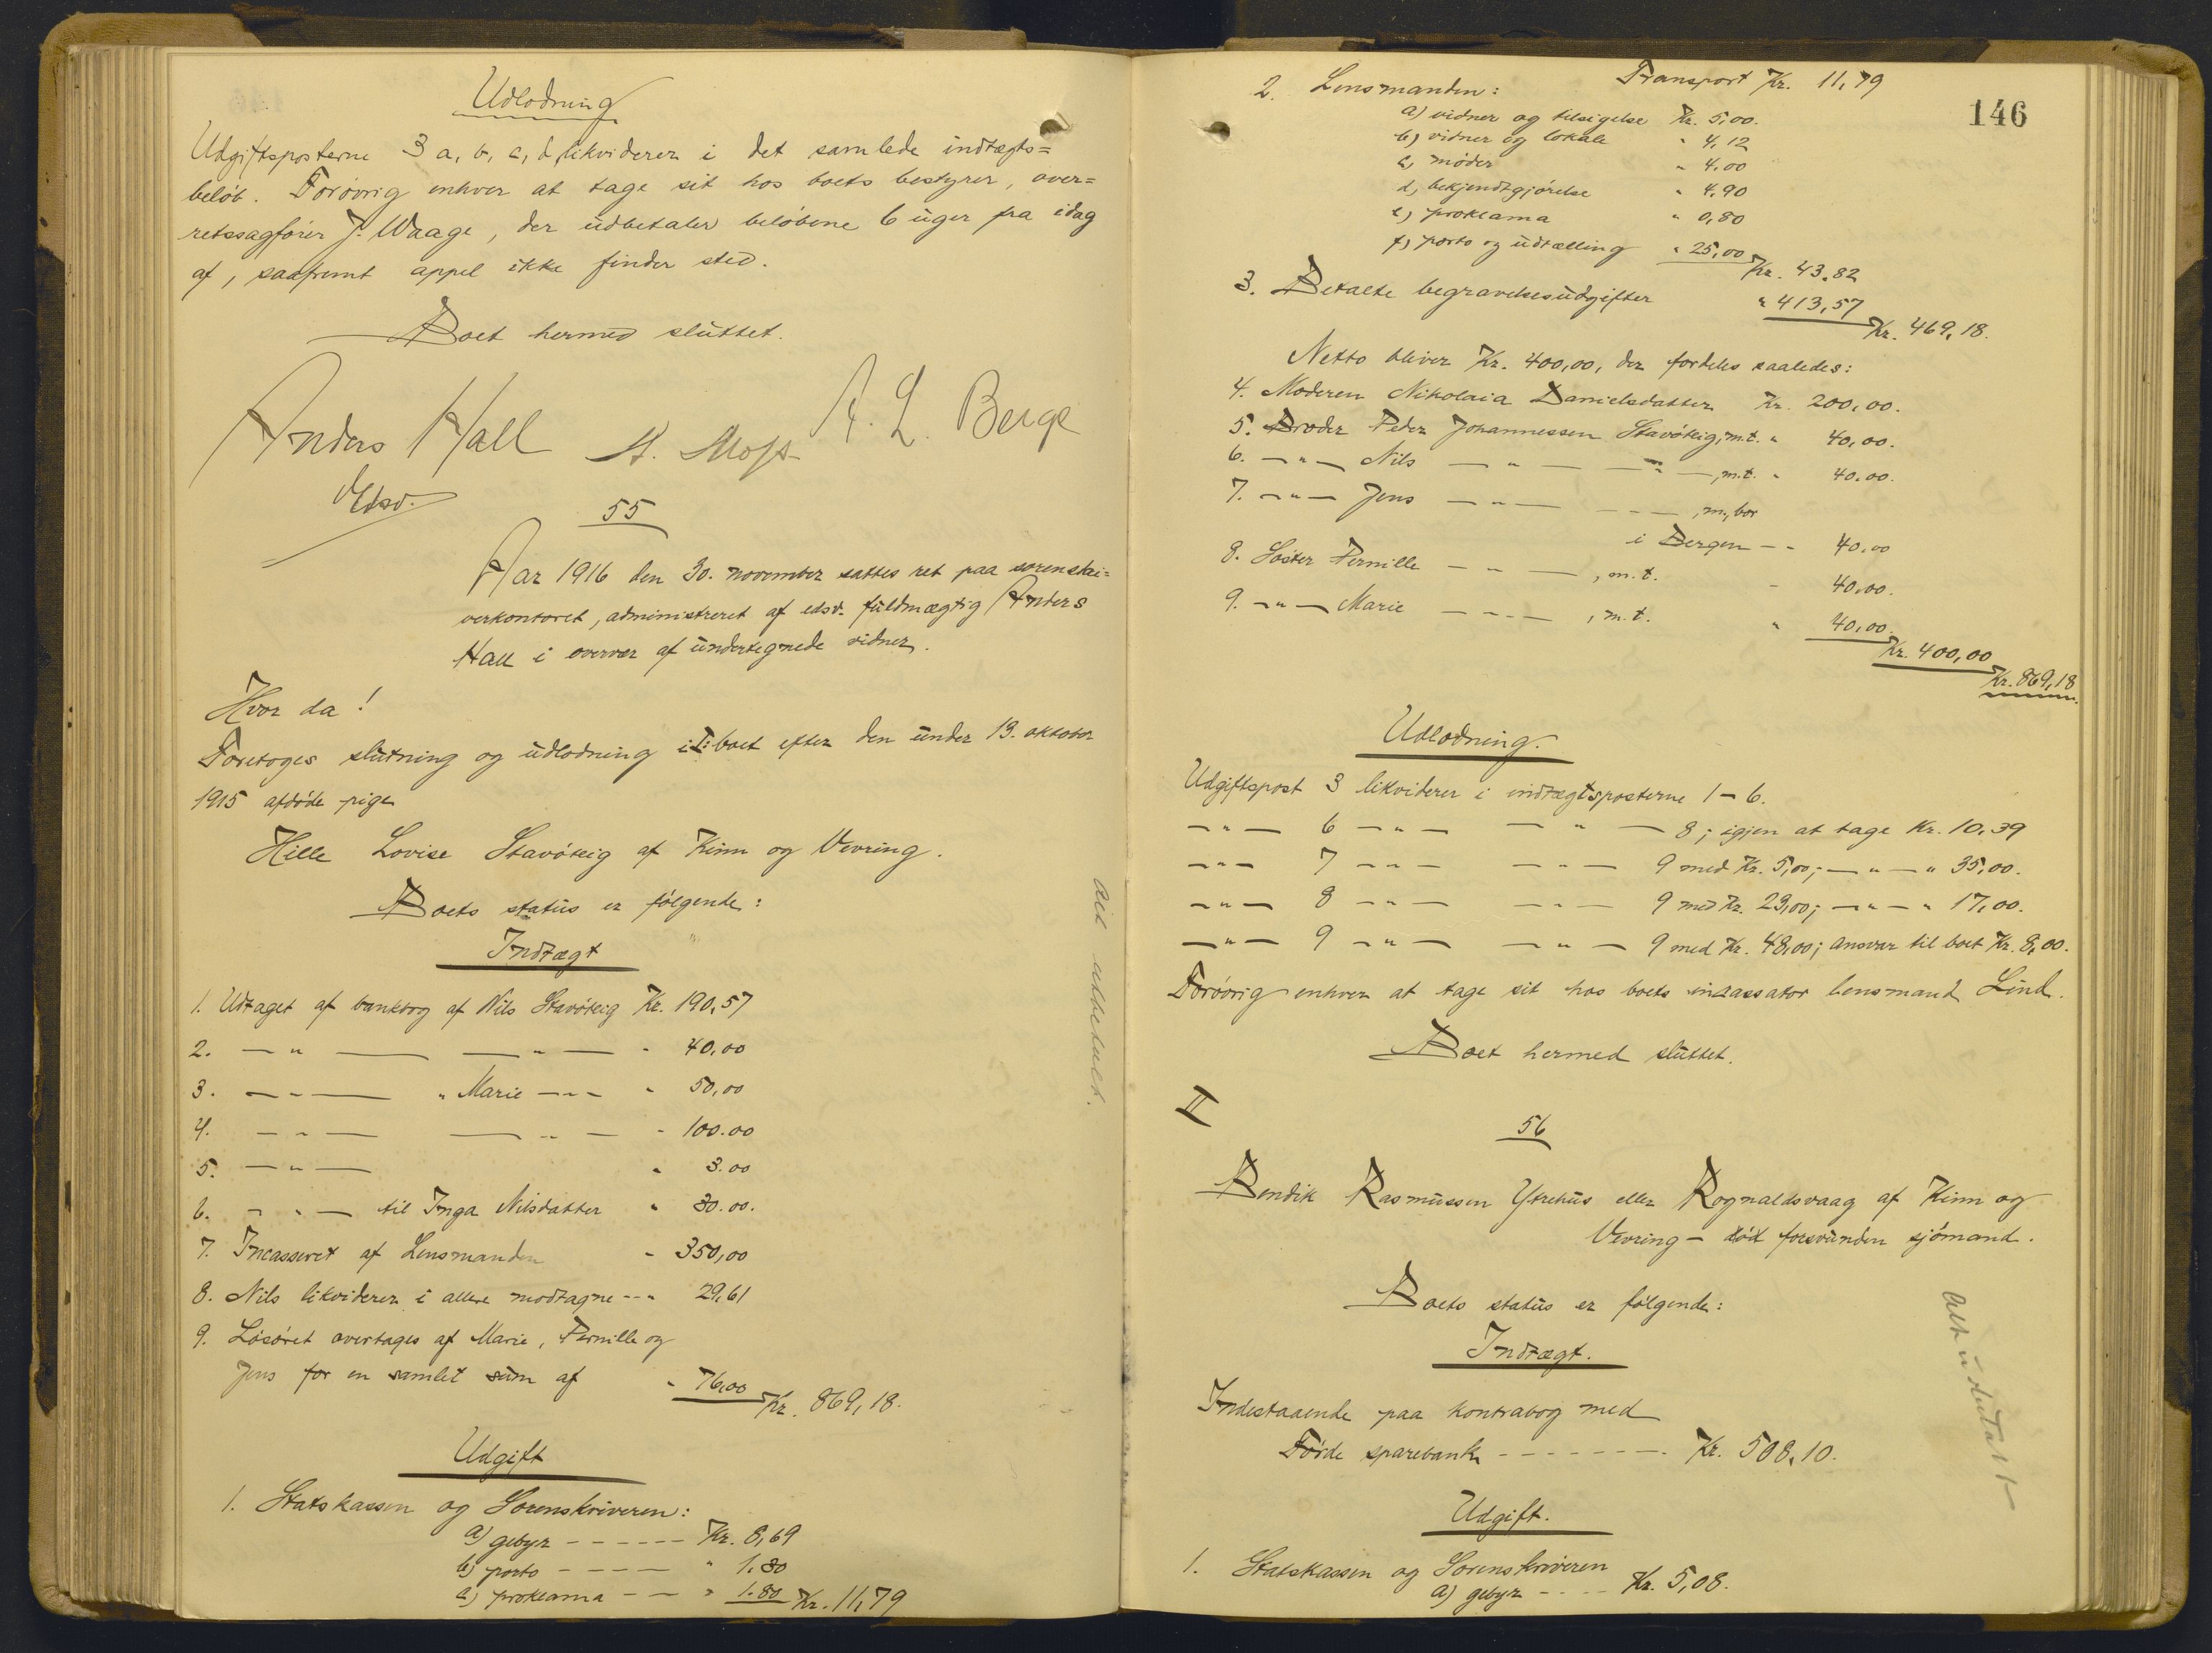 Udlodning
Udgiftsposterne 3 a, b, c, d likviderer i det samlede indtægts=
beløb. Forøvrig enhver at tage sit hos boets bestyrer, over=
retssagfører J. Waage, der udbetaler beløbene 6 uger fra idag
af, saafremt appel ikke finder sted.
Boet hermed sluttet.
Anders Hall A. L. Berge
Edsv.
55
Aar 1916 den 30. november sattes ret paa sorenskri=
verkontoret, administreret af edsv. fuldmægtig Anders
Hall i overvær af undertegnede vidner.
Hvor da!
Foretoges slutning og udlodning i I: boet efter den under 13. oktober
1915 afdøde pige
Hille Lovise Stavøteig af Kinn og Vevring.
Boets status er følgende:
Indtægt
1. Udtaget af bankbog af Nils Stavøteig Kr. 190,57
2. — " — — " — " 40,00
3. — " — " Marie — " — " 50,00
4. — " — — " — " 100.00
5. — " — " 3.00
6. — " — til Inga Nilsdatter " 30.00.
7. Incasseret af Lensmanden " 350,00
8. Nils likviderer i allere modtagne - - " 29,61
9. Løsøret overtages af Marie, Pernille og
Jens for en samlet sum af " 76,00
Kr. 869,18.
Udgift
1. Statskassen og Sorenskriveren:
a) gebyr - - - - - - Kr. 8,69
b) porto - - - - - " 1.30
c) proklama - - - " 1.80 Kr. 11,79
Alt udbetalt.
146
Transport Kr. 11,79
2. Lensmanden:
a) vidner og tilsigelse Kr. 5,00.
b) vidner og lokale " 4,12
c, møder " 4.00
d, bekjendtgjørelse " 4,90
e) proklama " 0,80
f) porto og udtælling " 25,00
Kr. 43.82
3. Betalte begravelsesudgifter " 413,57
Kr. 469,18.
Netto bliver Kr. 400,00, der fordeles saaledes:
4. Moderen Nikolaia Danielsdatter Kr. 200,00.
5. Broder Peder Johannessen Stavøteig, m.t. " 40,00.
6. — " — Nils — " — — " — , m.t. " 40.00.
7. — " — Jens — " — — — , m., bor
i Bergen — " 40,00
8. Søster Pernille — " — , m.t. " 40,00.
9. — " — Marie — " — , m.t. " 40,00.
Kr. 400,00
Kr. 869,18
Udlodning.
Udgiftspost 3 likviderer i indtægtsposterne 1 - 6.
— " — 6 — " — — " — 8; igjen at tage Kr. 10,39
— " — 7 — " — — " — 9 med Kr. 5,00; — " — " 35,00.
— " — 8 — " — — " — 9 med Kr. 23,00; — " — " 17,00.
— " — 9 — " — — " — 9 med Kr. 48,00; ansvar til boet Kr. 8,00.
Forøvrig enhver at tage sit hos boets incassator lensmand Lind.
Boet hermed sluttet.
II
56
Bendik Rasmussen Ytrehus eller Rognaldsvaag af Kinn og
Vevring - død forsvunden sjømand.
Boets status er følgende:
Indtægt.
Indestaaende paa kontrabog med
Førde sparebank - - - - - - - - Kr. 508,10.
Udgift.
1. Statskassen og Sorenskriveren
a) gebyr - - - - Kr. 5,08.
Alt udbetalt